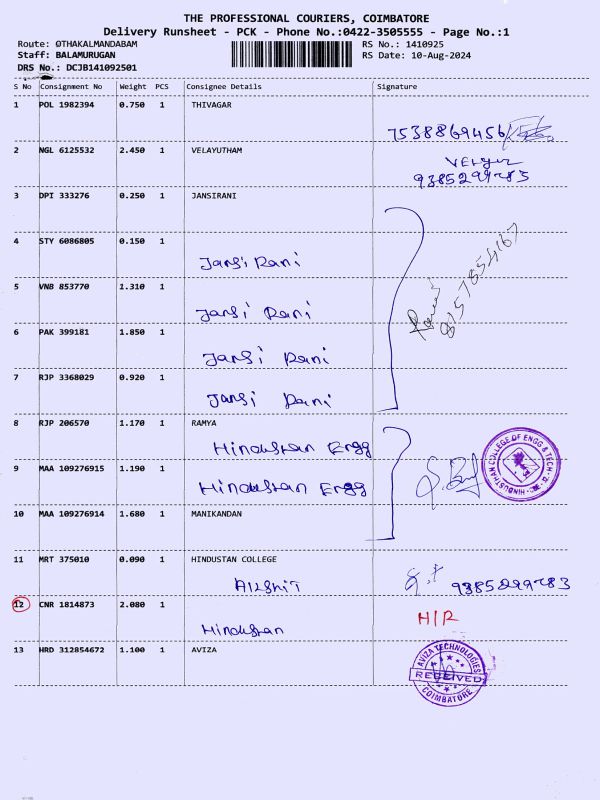 THE PROFESSIONAL COURIERS, COIMBATORE
Delivery Runsheet - PCK - Phone No.:0422-3505555 - Page No.:1
Route: OTHAKALMANDABAM
RS No.: 1410925
Staff: BALAMURUGAN
RS Date: 10-Aug-2024
DRS No.: DCJB141092501
S No Consignment No Weight PCS Consignee Details Signature
1 POL 1982394 0.750 1 THIVAGAR
7538869456
2 NGL 6125532 2.450 1 VELAYUTHAM
9385299783
3 DPI 333276 0.250 1 JANSIRANI
4 STY 6086805 0.150 1
Jansi Rani
5 VNB 853770 1.310 1
Jansi Rani
6 PAK 399181 1.850 1
Jansi Rani
7 RJP 3368029 0.920 1
Jansi Rani
8 RJP 206570 1.170 1 RAMYA
Hindustan Engg
9 MAA 109276915 1.190 1
Hindustan Engg
HINDUSTHAN COLLEGE OF ENGG & TECH
10 MAA 109276914 1.680 1 MANIKANDAN
11 MRT 375010 0.090 1 HINDUSTAN COLLEGE
9385299783
12 CNR 1814873 2.080 1
Hindustan
H/R
13 HRD 312854672 1.100 1 AVIZA
AVIZA TECHNOLOGIES
RECEIVED
COIMBATORE